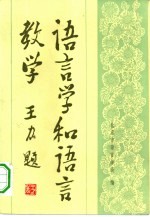 语言学和语言
教学
王力题